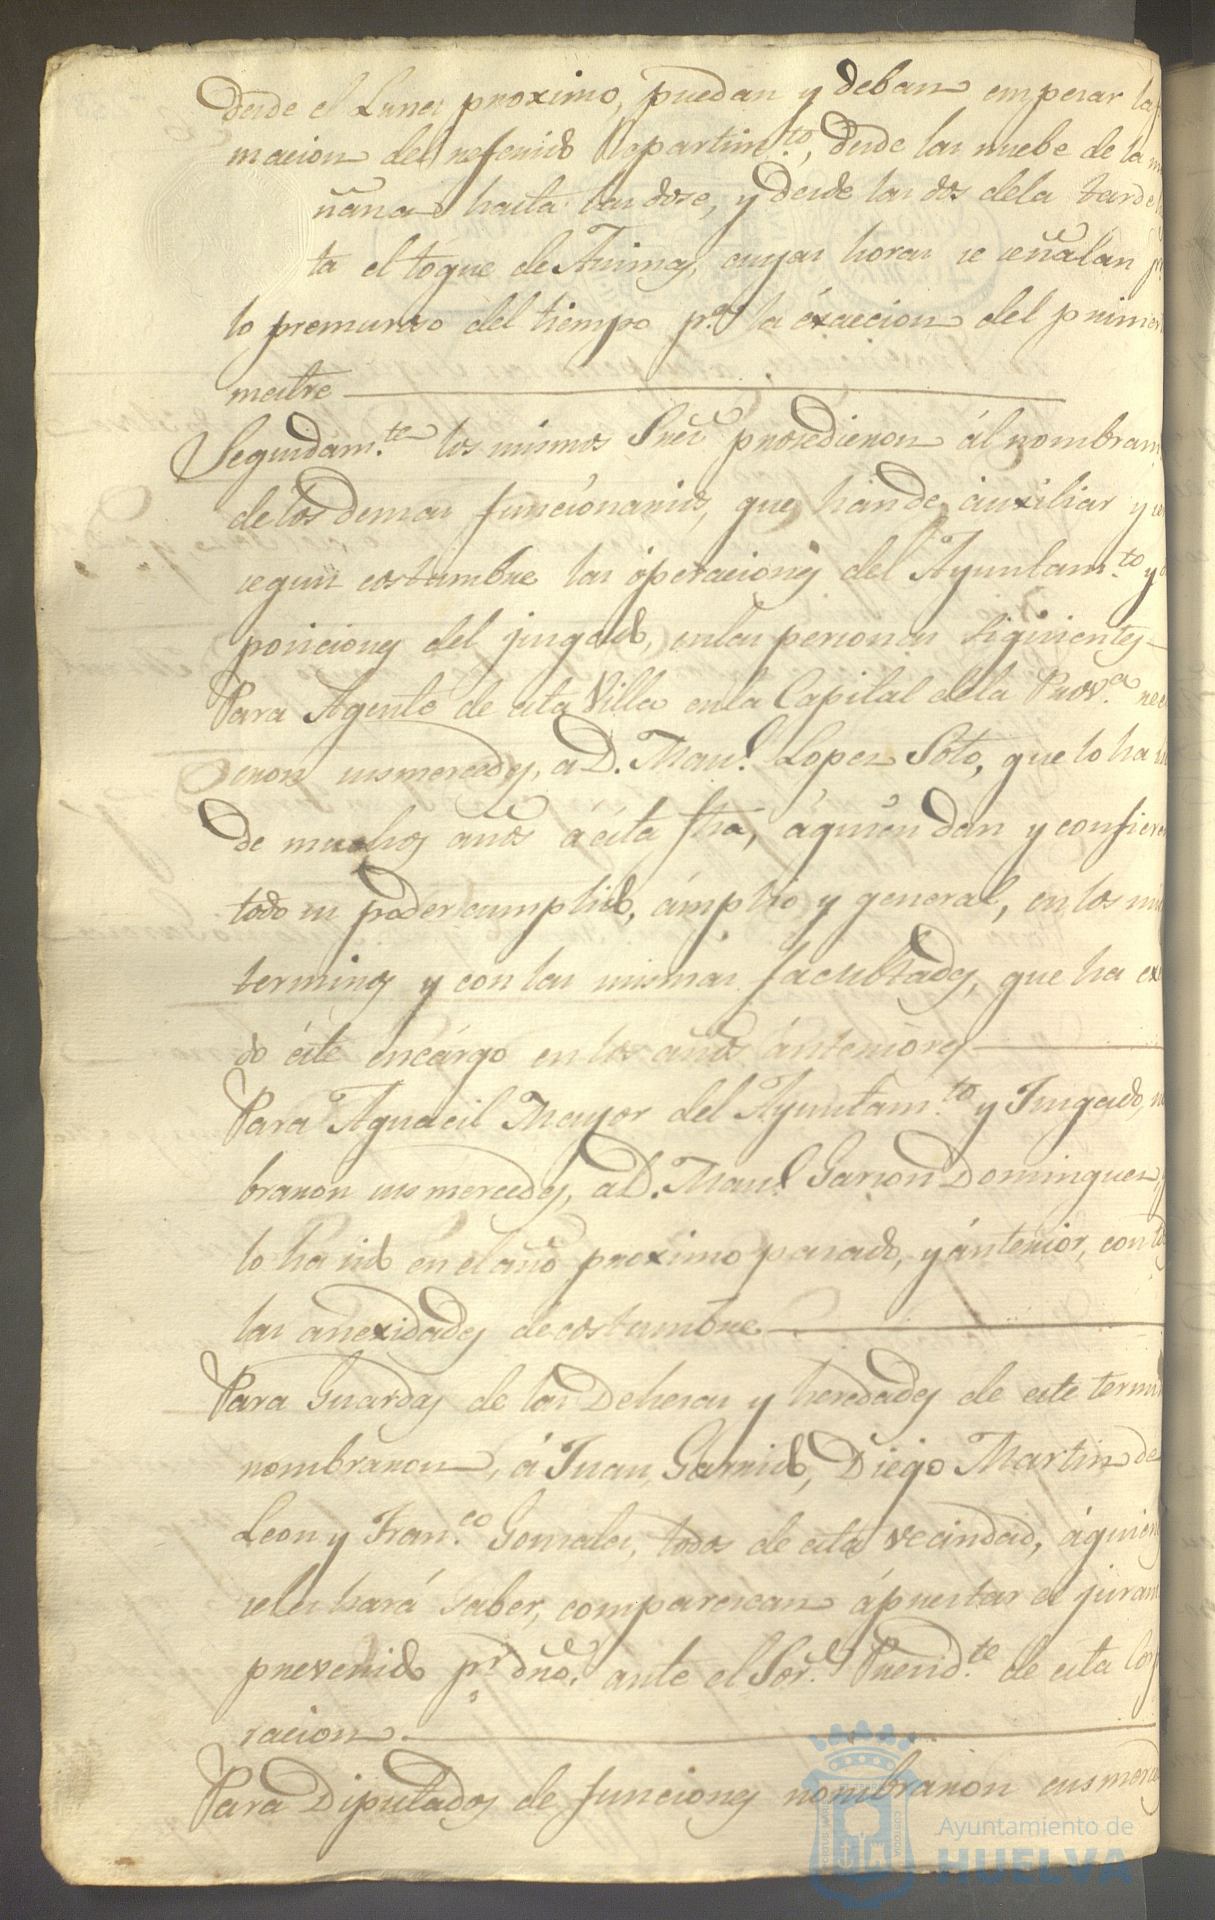 desde el Lunes proximo, puedan y deban empesar la
macion del referido Repartim.to, desde las nuebe de la
ñana hasta las dose, y desde las dos dela tarde
ta el toque de Animas, cuyas horas se señalan
lo premuroso del tiempo p.a la éxaccion del primer
mestre
Seguidam.te los mismos Sres prosedieron ál nombram
delos demas funcionarios, que hande auxiliar y
segun costumbre las óperaciones del Ayuntam.to y
posiciones del jusgado, enlas personas siguientes
Para Agente de esta Villa enla Capital dela Prov.a
eron sus mercedes, a D. Man.l Lopez Soto, que lo ha
de muchos años á ésta fha, áquien dan y confieren
todo su poder cumplido, ámplio y general, en los
terminos y con las mismas facultades, que ha
do éste encargo en los años ánteriores
Para Aguacil Mayor del Ayuntam.to y Jusgado,
braron sus mercedes, a D. Man.l Garson Dominguez,
lo ha sido en el año proximo pasado, y ánterior, con
las anexidades de costumbre
Para Guardas de las Dehesas y heredades de este term
nombraron, á Juan Garrido, Diego Martin de
Leon y Fran.co Gonzales, todos de esta vecindad, áquien
seles hará saber, comparescan áprestar el juram
prevenido p.r dro. ante el Sor. Presid.te de esta Cor
racion
Para Diputados de funciones nombraron sus merced
Ayuntamiento de
HUELVA